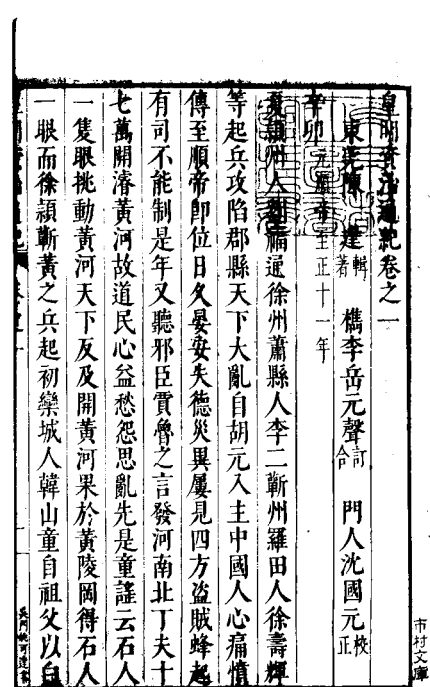 皇明資治通紀卷之一
東莞陳建輯著 檇李岳元聲訂合 門人沈國元校正
辛卯元順帝至正十一年
夏潁州人劉福通徐州蕭縣人李二蘄州羅田人徐壽輝
等起兵攻陷郡縣天下大亂自胡元入主中國人心痛憤
傳至順帝即位日久晏安失德災異屢見四方盜賊蜂起
有司不能制是年又聽邪臣賈魯之言發河南北丁夫十
七萬開濬黃河故道民心益愁怨思亂先是童謠云石人
一隻眼挑動黃河天下反及開黃河果於黃陵岡得石人
一眼而徐潁蘄黃之兵起初欒城人韓山童自祖父以白
市村文庫